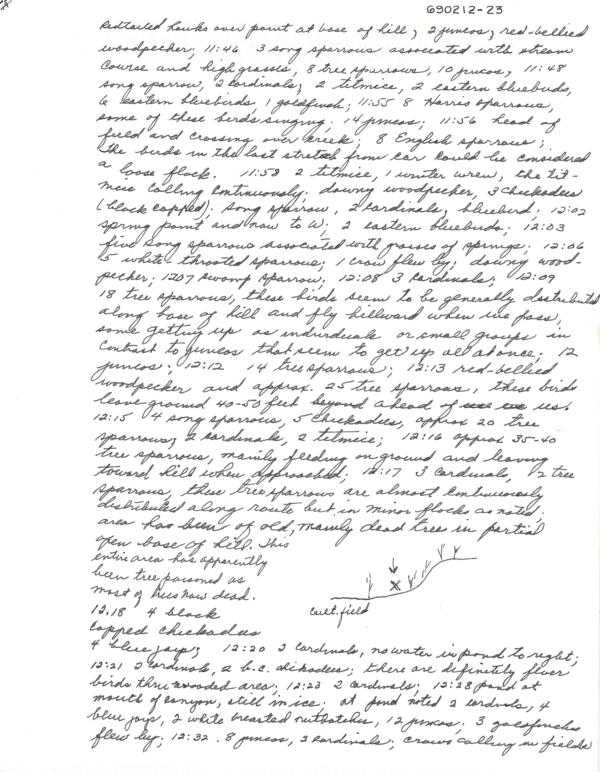 690212-23
Redtailed hawks over point at base of hill; 2 juncos; red-bellied
woodpecker; 11:46 3 song sparrows associated with stream
course and high grasses, 8 tree sparrows, 10 juncos; 11:48
song sparrow, 2 cardinals; 2 titmice, 2 eastern bluebirds,
6 eastern bluebirds, 1 goldfinch; 11:55 8 Harris sparrows,
some of these birds singing; 14 juncos; 11:56 head of
field and crossing over creek; 8 English sparrows;
the birds in the last stretch from car could be considered
a loose flock. 11:58 2 titmice, 1 winter wren, the tit-
mice calling continuously; downy woodpecker, 3 chickadees
(black capped); song sparrow, 2 cardinals; bluebird; 12:02
spring point and now to W; 2 eastern bluebirds; 12:03
five song sparrows associated with grasses of springs; 12:06
5 white-throated sparrows; 1 crow flew by; downy wood-
pecker; 1207 swamp sparrow; 12:08 3 cardinals; 12:09
18 tree sparrows, these birds seem to be generally distributed
along base of hill and fly hillward when we pass,
some getting up as individuals or small groups in
contrast to juncos that seem to get up all at once; 12
juncos; 12:12 14 tree sparrows; 12:13 red-bellied
woodpecker and approx. 25 tree sparrows, these birds
leave ground 40-50 feet beyond ahead of us.
12:15 4 song sparrows, 5 chickadees, approx 20 tree
sparrows; 2 cardinals, 2 titmice; 12:16 approx 35-40
tree sparrows, mainly feeding on ground and leaving
toward hill when approached; 12:17 3 cardinals, 2 tree
sparrows, these tree sparrows are almost continuously
distributed along route but in minor flocks as noted;
area has been of old, mainly dead tree in partial
open base of hill. This
entire area has apparently
been tree poisoned as
most of trees now dead.
X
Cult. field
12:18 4 black
capped chickadees
4 blue jays; 12:20 2 cardinals, no water in pond to right;
12:21 2 cardinals, 2 b.c. chickadees; there are definitely fewer
birds thru wooded area; 12:23 2 cardinals; 12:28 pond at
mouth of canyon, still in ice; at pond noted 2 cardinals, 4
blue jays, 2 white breasted nuthatches, 12 juncos; 3 goldfinches
flew by; 12:32 8 juncos, 2 cardinals; crows calling in fields